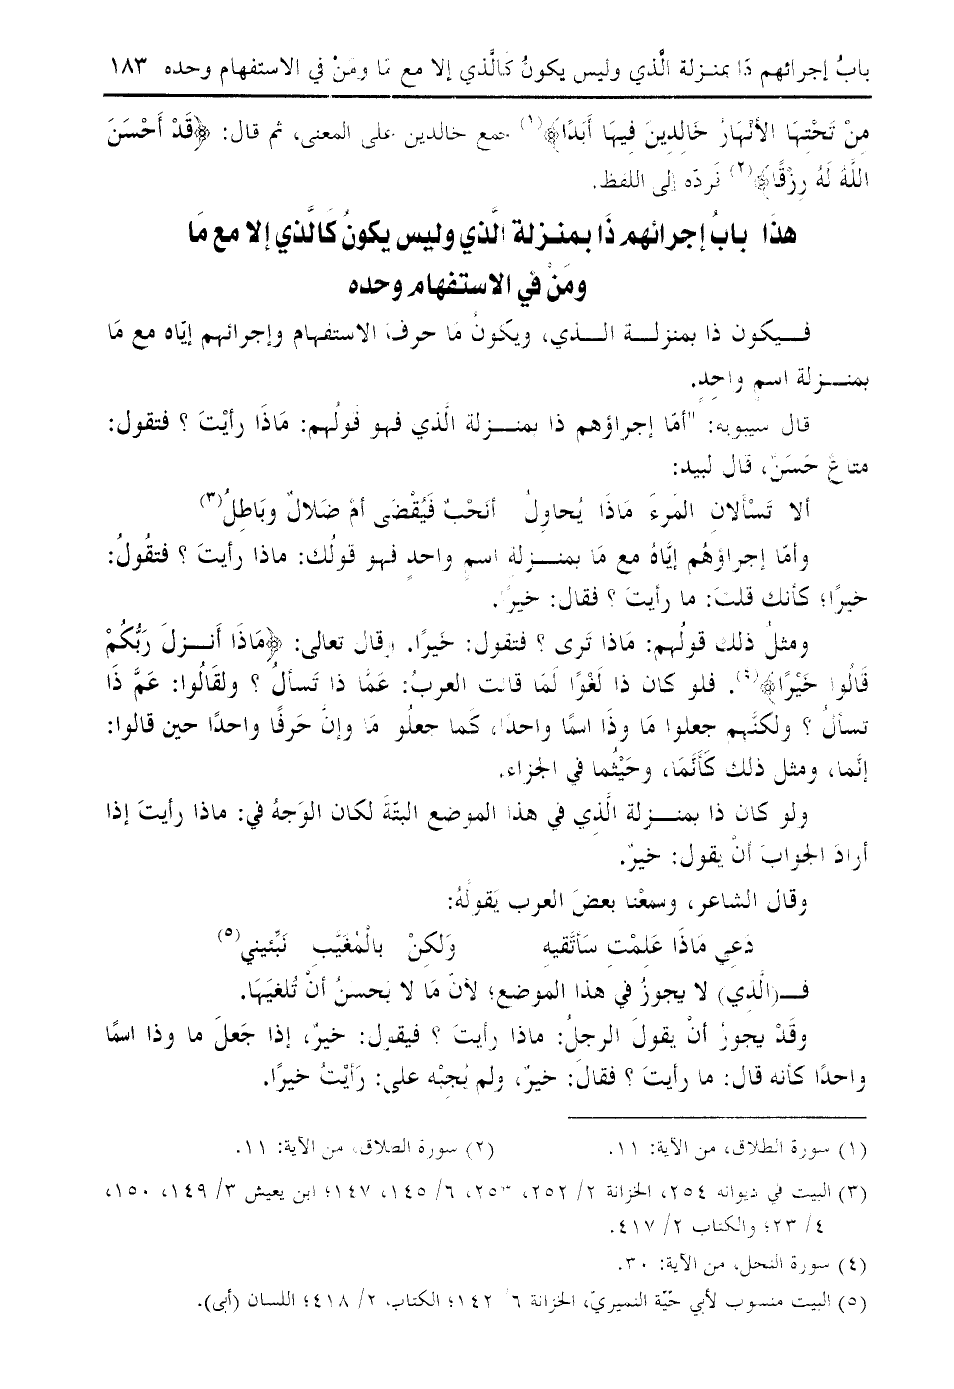 بابُ إجرائهم ذَا بمنـزلة الَّذي وليس يكونُ كَالَّذي إلا مع مَا ومَنْ في الاستفهام وحده ١٨٣
مِنْ تَحْتِهَا الأَنْهَارُ خَالِدِينَ فِيهَا أَبَدًا﴾(١) جمع خالدين على المعنى، ثم قال: ﴿قَدْ أَحْسَنَ
اللَّهُ لَهُ رِزْقًا﴾(٢) فَردّه إلى اللفظ.
هذَا بابُ إجرائهم ذَا بمنـزلة الَّذي وليس يكونُ كَالَّذي إلا مع مَا
ومَنْ في الاستفهام وحده
فـــيكون ذا بمنزلـــة الـــذي، ويكونُ مَا حرفَ الاستفهام وإجرائهم إيّاه مع مَا
بمنـــزلة اسمٍ واحِدٍ.
قال سيبويه: "أمّا إجراؤهم ذا بمنـــزلة الَّذي فهو قولُهم: مَاذَا رأيْتَ ؟ فتقول:
متاعٌ حَسَنٌ، قال لبيد:
ألا تَسْألانِ المَرءَ مَاذَا يُحاولُ أنَحْبٌ فَيُقْضَى أمْ ضَلالٌ وبَاطِلُ(٣)
وأمّا إجراؤهُم إيَّاهُ مع مَا بمنـــزلة اسمٍ واحدٍ فهو قولُك: ماذا رأيتَ ؟ فتقُولُ:
خيرًا؛ كأنك قلتَ: ما رأيتَ ؟ فقال: خيرًا.
ومثلُ ذلك قولُهم: مَاذَا تَرى ؟ فتقول: خَيرًا. وقال تعالى: ﴿مَاذَا أَنـــزلَ رَبُّكُمْ
قَالُوا خَيْرًا﴾(٤). فلو كان ذا لَغْوًا لَمَا قالت العربُ: عَمَّا ذا تَسألُ ؟ ولقَالُوا: عَمَّ ذَا
تسألُ ؟ ولكنَّهم جعلوا مَا وذَا اسمًا واحدًا، كَما جعلُو مَا وإنَّ حَرفًا واحدًا حين قالوا:
إنَّما، ومثل ذلك كَأَنَّمَا، وحَيْثُما في الجزاء.
ولو كان ذا بمنـــزلة الَّذي في هذا الموضع البتّةَ لكان الوَجهُ في: ماذا رأيتَ إذا
أرادَ الجوابَ أنْ يقول: خيرٌ.
وقال الشاعر، وسمعْنا بعضَ العرب يَقولُهُ:
دَعِي مَاذَا عَلِمْتِ سَأتَّقيهِ وَلكِنْ بالْمُغَيَّبِ نَبِّئيني(٥)
فــ(الَّذي) لا يجوزُ في هذا الموضع؛ لأنّ مَا لا يَحسنُ أنْ تُلغيَهَا.
وقَدْ يجوزُ أنْ يقولَ الرجلُ: ماذا رأيتَ ؟ فيقول: خيرٌ، إذا جَعلَ ما وذا اسمًا
واحدًا كأنه قال: ما رأيتَ ؟ فقالَ: خيرٌ، ولم يُجِبْه على: رَأيْتُ خيرًا.
(١) سورة الطلاق، من الآية: ١١. (٢) سورة الطلاق، من الآية: ١١.
(٣) البيت في ديوانه ٢٥٤، الخزانة ٢/ ٢٥٢، ٢٥٣، ٦/ ١٤٥، ١٤٧؛ ابن يعيش ٣/ ١٤٩، ١٥٠،
٤/ ٢٣؛ والكتاب ٢/ ٤١٧.
(٤) سورة النحل، من الآية: ٣٠.
(٥) البيت منسوب لأبي حيّة النميريّ، الخزانة ٦/ ١٤٢؛ الكتاب، ٢/ ٤١٨؛ اللسان (أبى).